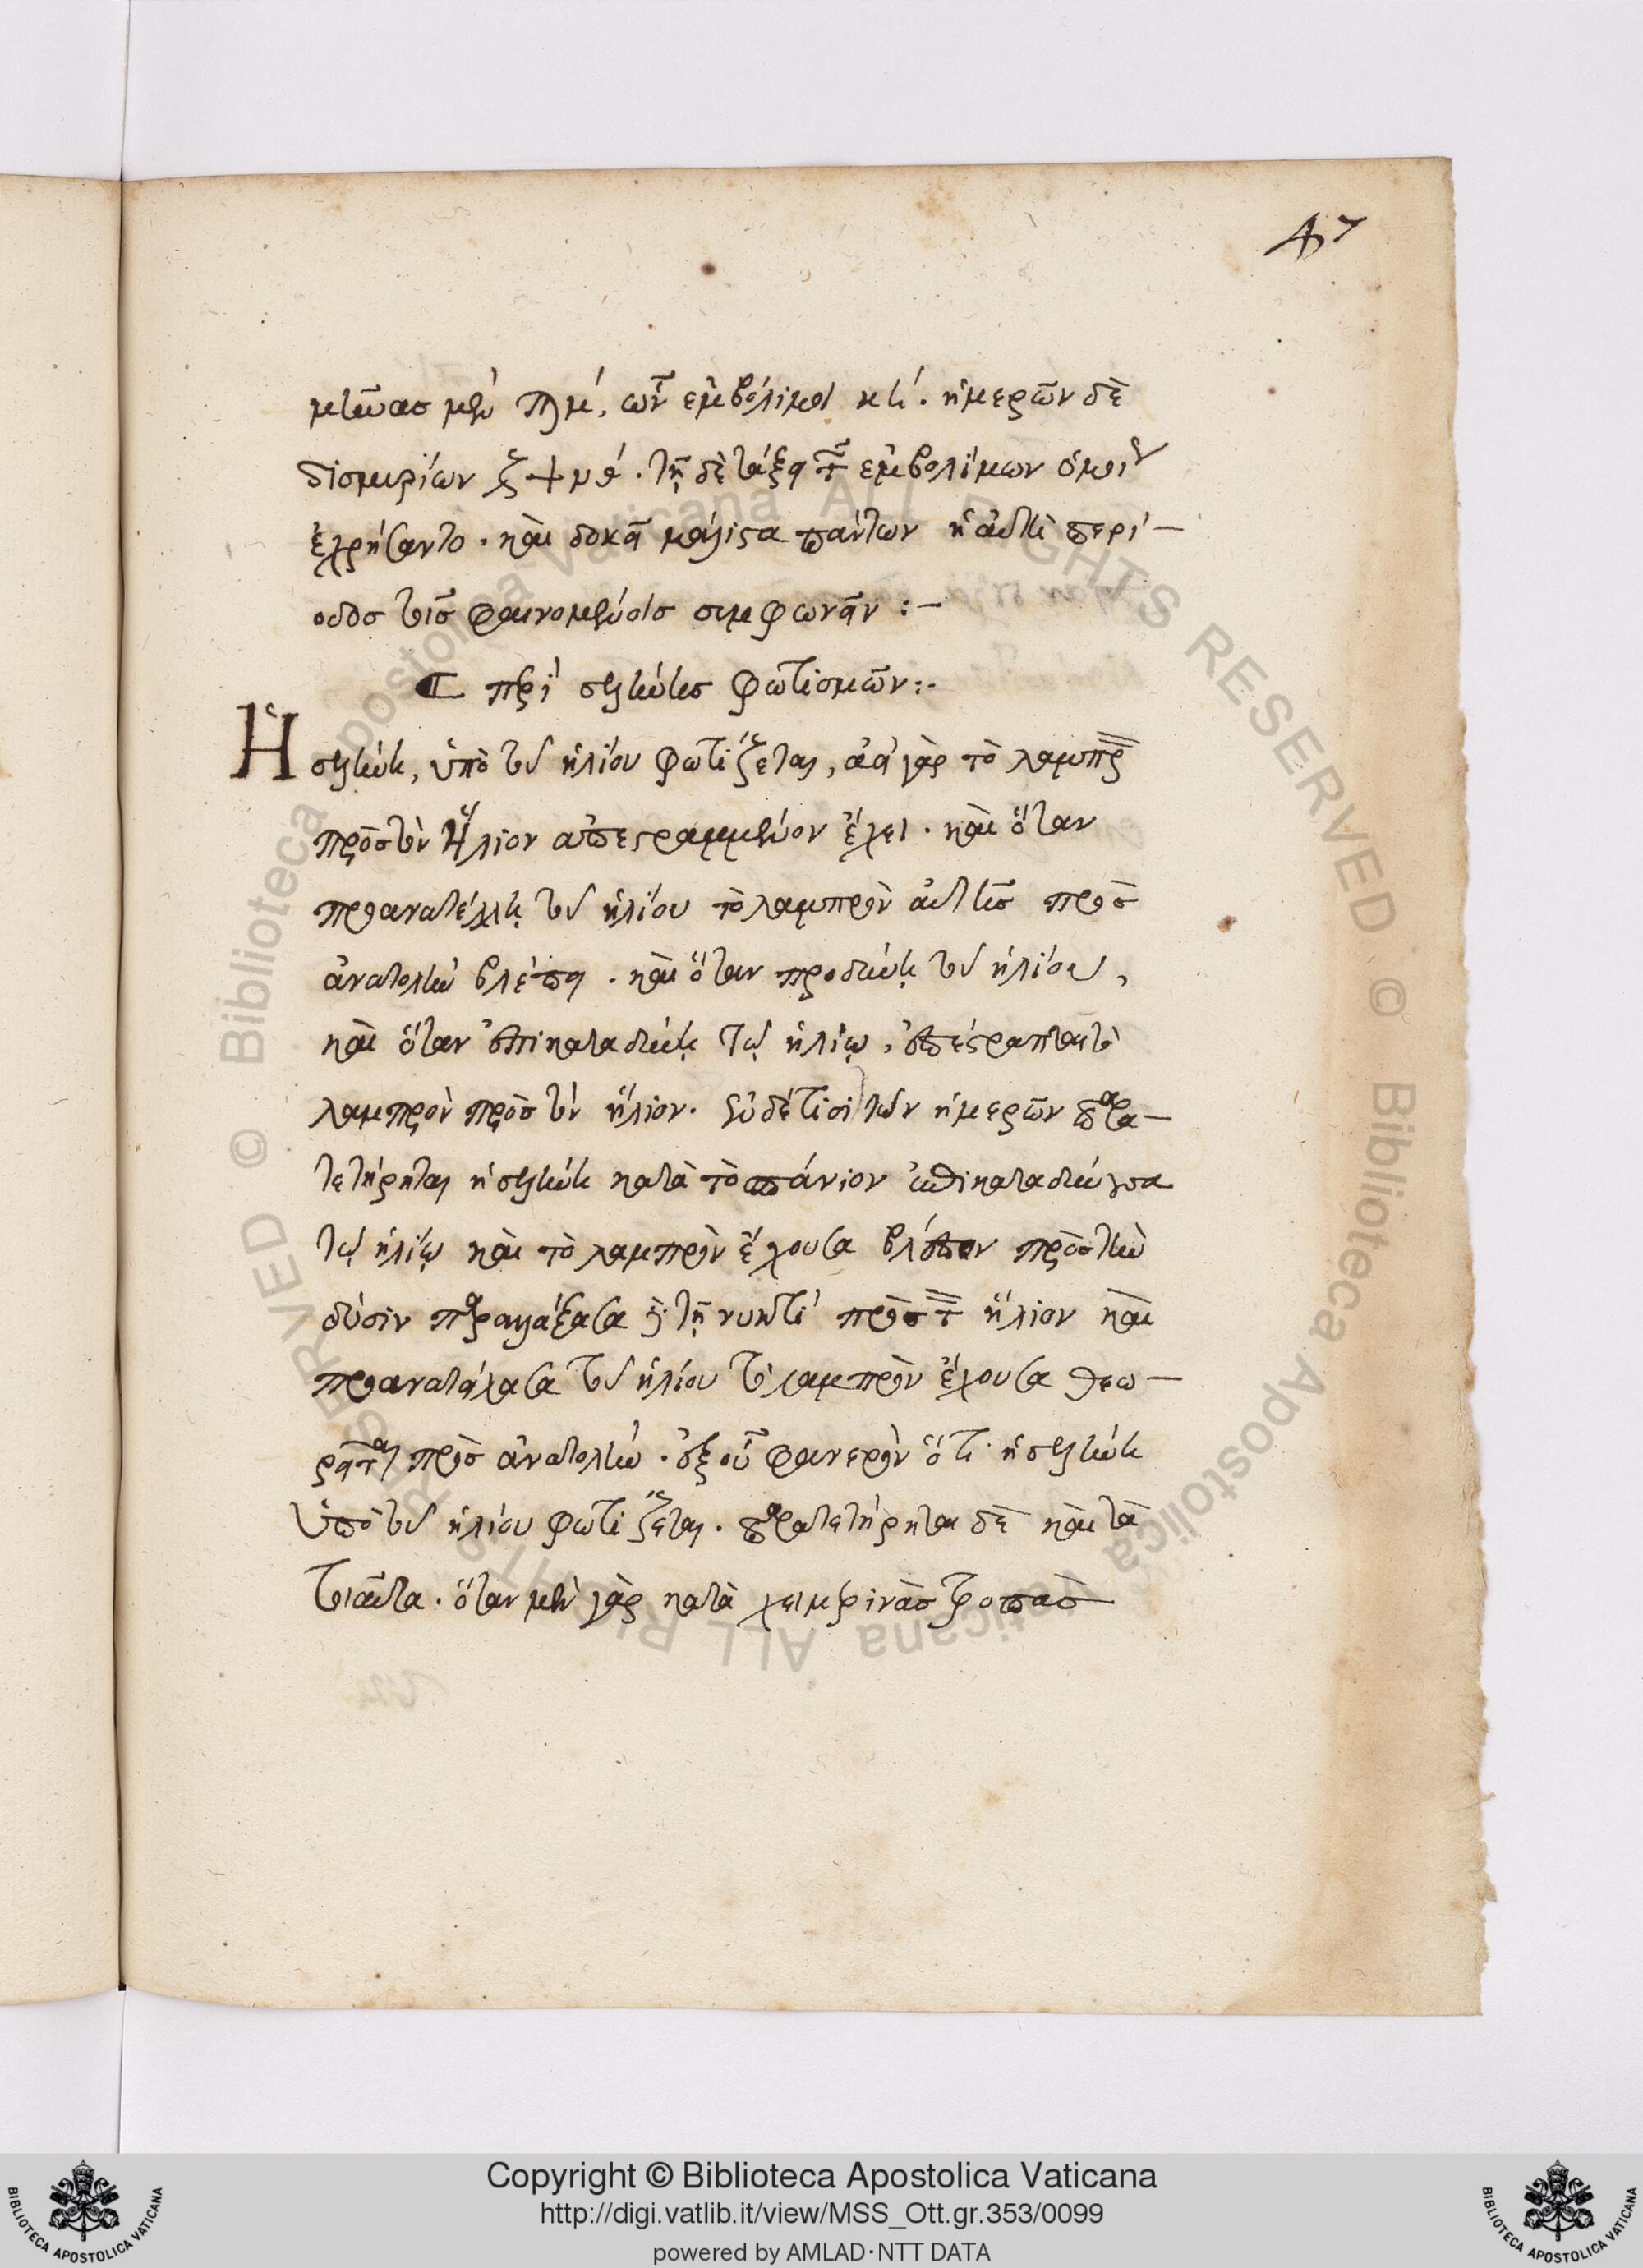 47
μῆνας μὲν ϡμ´, ὧν ἐμβόλιμοι κη´. ἡμερῶν δὲ
δισμυρίων ζψνθ´. τῇ δὲ τάξει τῶν ἐμβολίμων ὁμοίως
ἐχρήσαντο. καὶ δοκεῖ μάλιστα πάντων ἡ αὐτὴ περί-
οδος τοῖς φαινομένοις συμφωνεῖν :-
περὶ σελήνης φωτισμῶν :-
Ἡ σελήνη, ὑπὸ τοῦ ἡλίου φωτίζεται, ἀεὶ γὰρ τὸ λαμπρὸν
πρὸς τὸν Ἥλιον ἀπεστραμμένον ἔχει. καὶ ὅταν
προανατέλλῃ τοῦ ἡλίου τὸ λαμπρὸν αὐτῆς πρὸς
ἀνατολὴν βλέπει. καὶ ὅταν προδύνῃ τοῦ ἡλίου,
καὶ ὅταν ἐπικαταδύνῃ τῷ ἡλίῳ, ἐπέστραπται τὸ
λαμπρὸν πρὸς τὸν ἥλιον. ἐν δέ τισι τῶν ἡμερῶν παρα-
τετήρηται ἡ σελήνη κατὰ τὸ σπάνιον ἐπικαταδύνουσα
τῷ ἡλίῳ καὶ τὸ λαμπρὸν ἔχουσα βλέπον πρὸς τὴν
δύσιν παραλλάξασα ἐν τῇ νυκτὶ πρὸς τὸν ἥλιον καὶ
προανατείλασα τοῦ ἡλίου τὸ λαμπρὸν ἔχουσα θεω-
ρεῖται πρὸς ἀνατολήν. ἐξ οὗ φανερὸν ὅτι ἡ σελήνη
ὑπὸ τοῦ ἡλίου φωτίζεται. παρατετήρηται δὲ καὶ τὰ
τοιαῦτα. ὅταν μὲν γὰρ κατὰ χειμερινὰς τροπὰς
Copyright © Biblioteca Apostolica Vaticana
http://digi.vatlib.it/view/MSS_Ott.gr.353/0099
powered by AMLAD·NTT DATA
BIBLIOTECA APOSTOLICA VATICANA
BIBLIOTECA APOSTOLICA VATICANA
© Biblioteca Apostolica Vaticana ALL RIGHTS RESERVED © Biblioteca Apostolica Vaticana ALL RIGHTS RESERVED